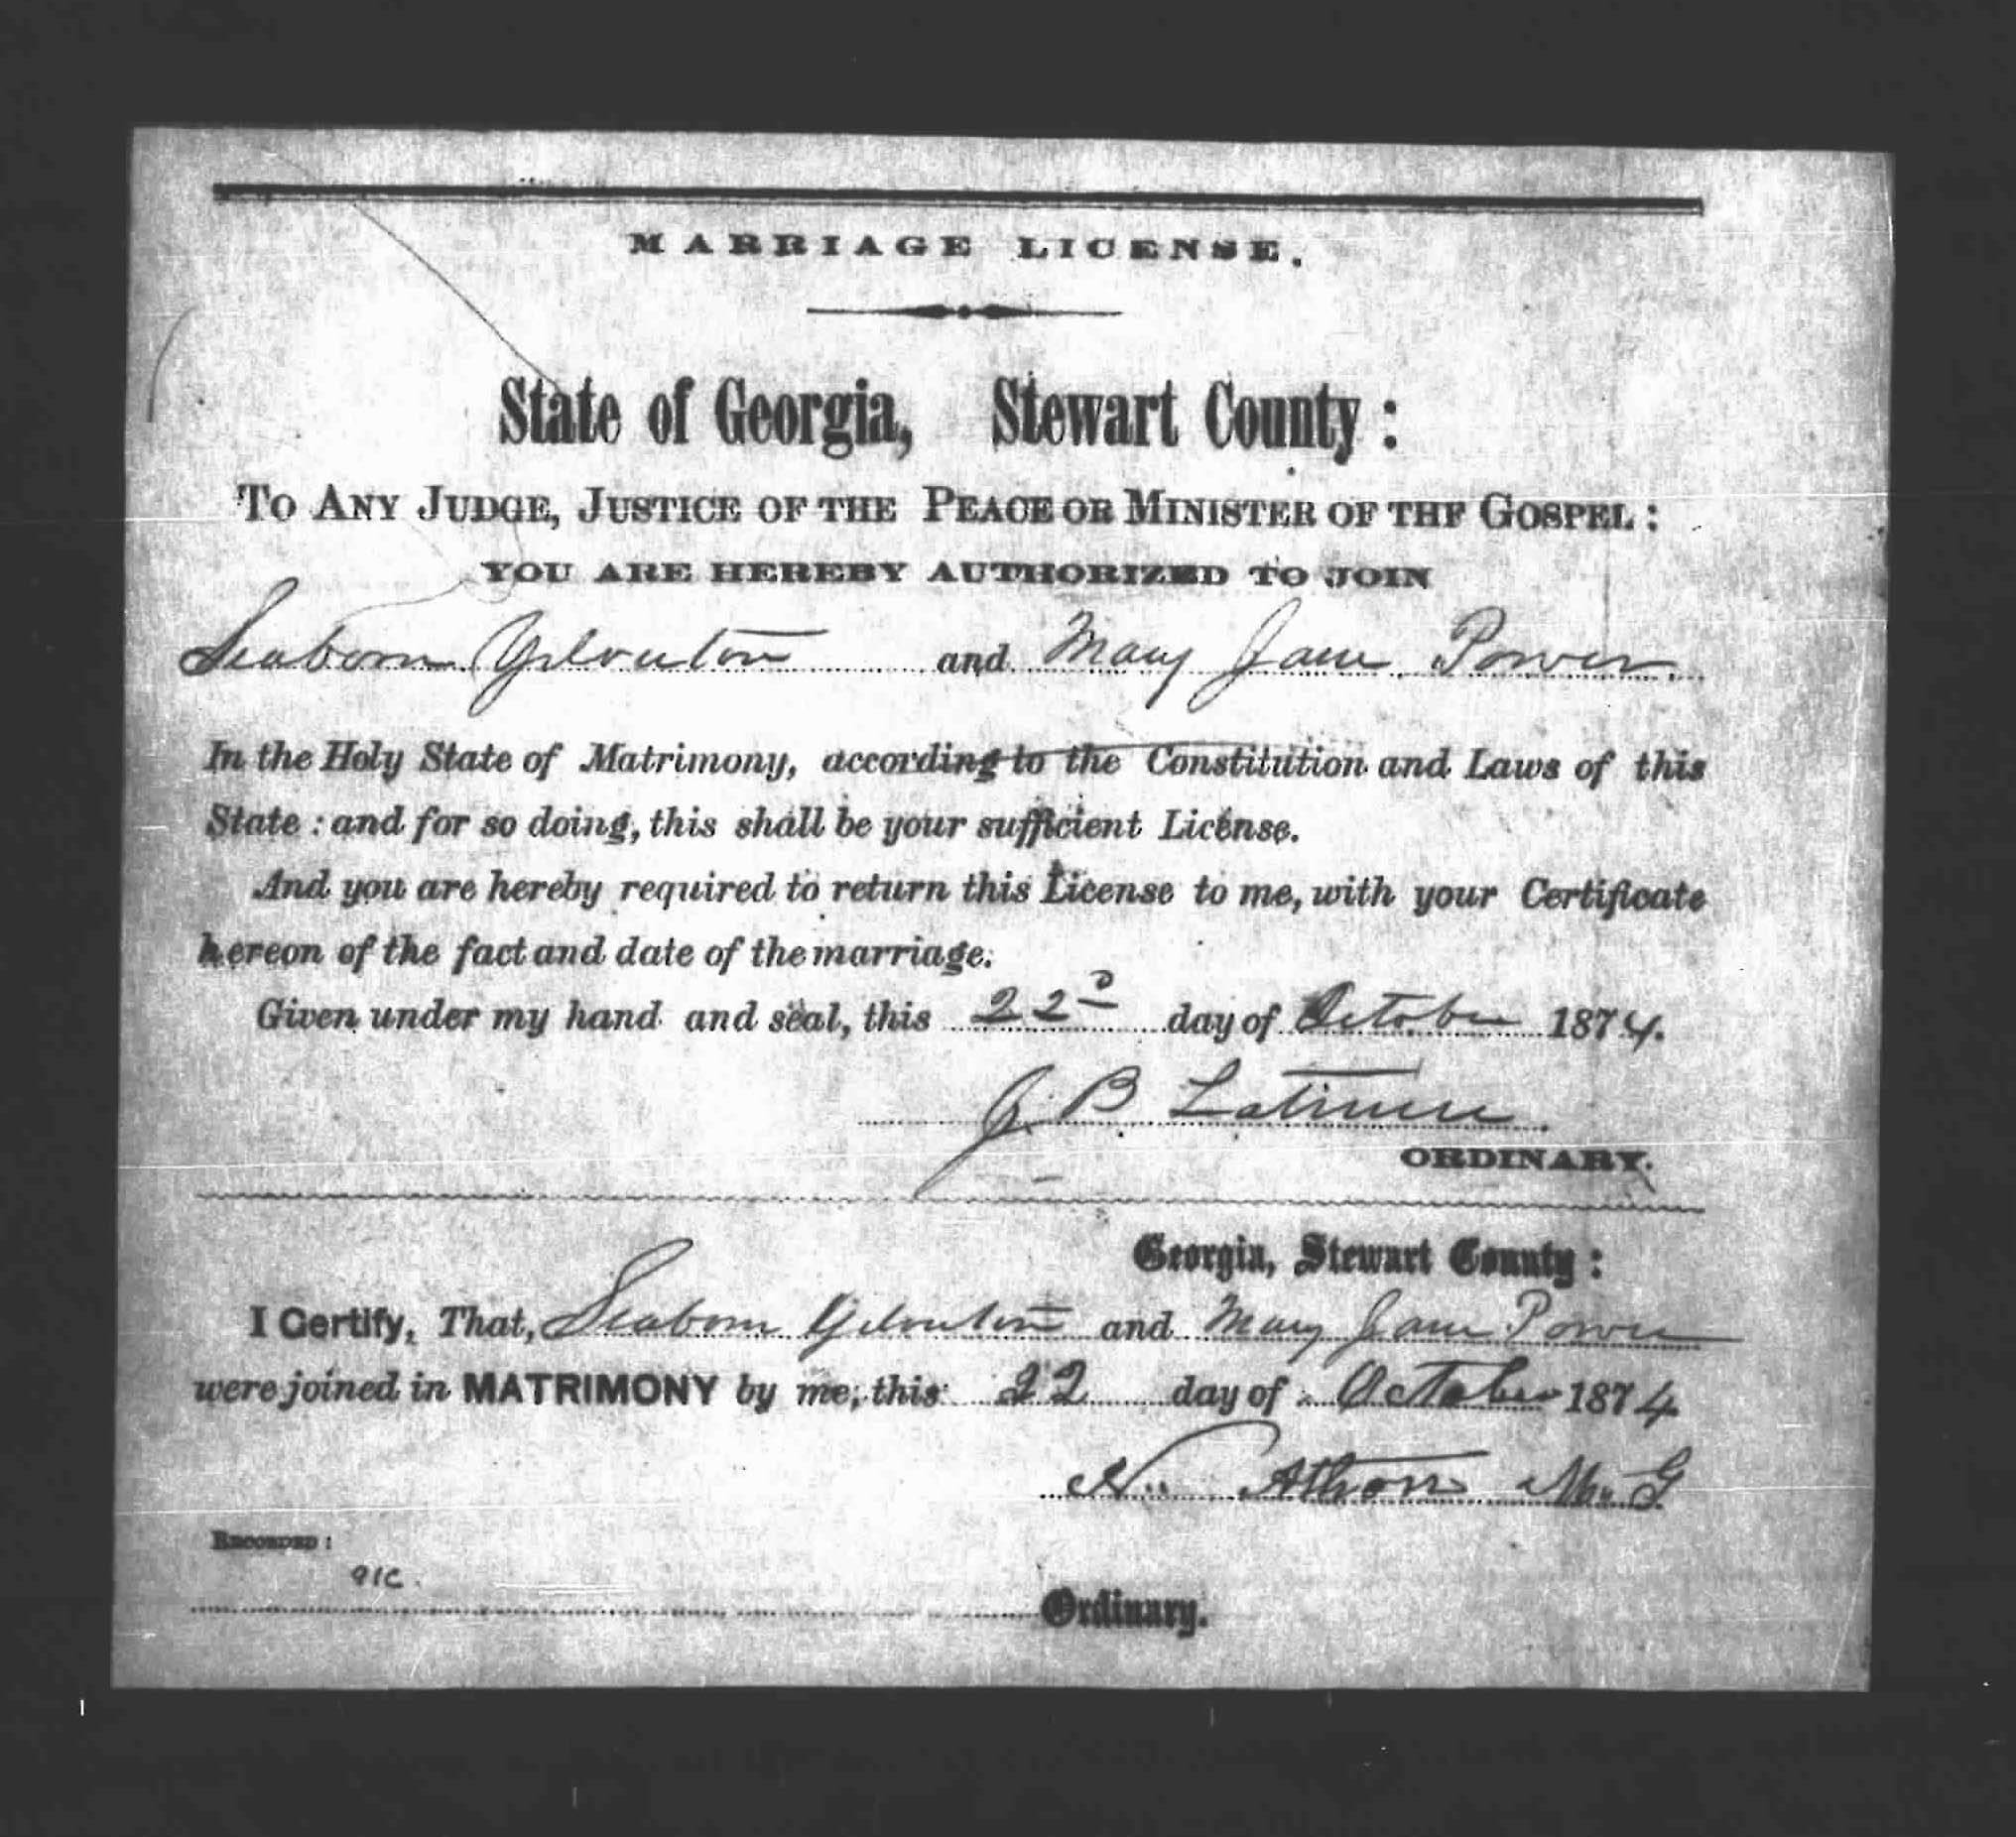 MARRIAGE LICENSE.
State of Georgia, Stewart County :
TO ANY JUDGE, JUSTICE OF THE PEACE OR MINISTER OF THE GOSPEL :
YOU ARE HEREBY AUTHORIZED TO JOIN
Seaborn and Mary Jane Power
In the Holy State of Matrimony, according to the Constitution and Laws of this
State : and for so doing, this shall be your sufficient License.
And you are hereby required to return this License to me, with your Certificate
hereon of the fact and date of the marriage.
Given under my hand and seal, this 22d day of October 1874.
J. B. Latimer
ORDINARY.
Georgia, Stewart County :
I Certify, That, Seaborn and Mary Jane Power
were joined in MATRIMONY by me, this 22 day of October 1874
M. G
RECORDED :
91C.
Ordinary.